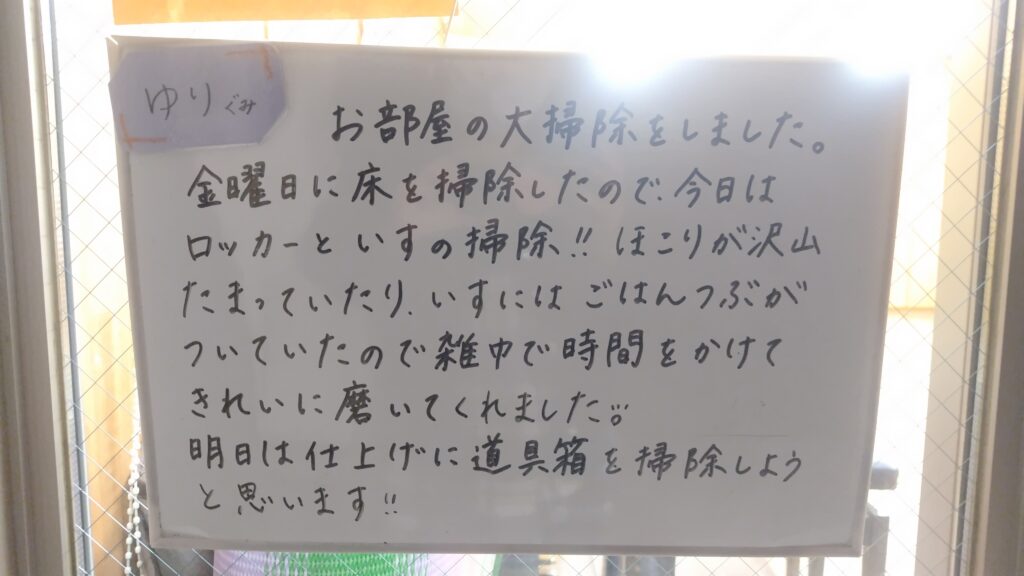 ゆりぐみ
お部屋の大掃除をしました。
金曜日に床を掃除したので、今日は
ロッカーといすの掃除!! ほこりが沢山
たまっていたり、いすには ごはんつぶが
ついていたので雑巾で時間をかけて
きれいに磨いてくれました!!
明日は仕上げに道具箱を掃除しよう
と思います!!